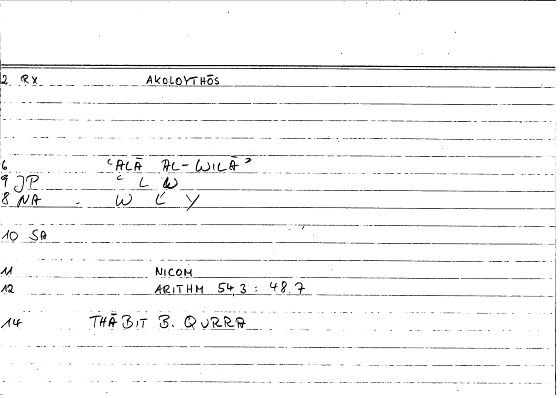 2 RX AKOLOYTHŌS
6 ʿALĀ AL-WILĀʾ
9 JP ʿ L W
8 NA W L Y
10 SA
11 NICOM
12 ARITHM 54,3 : 48.7
14 THĀBIT B. QURRA